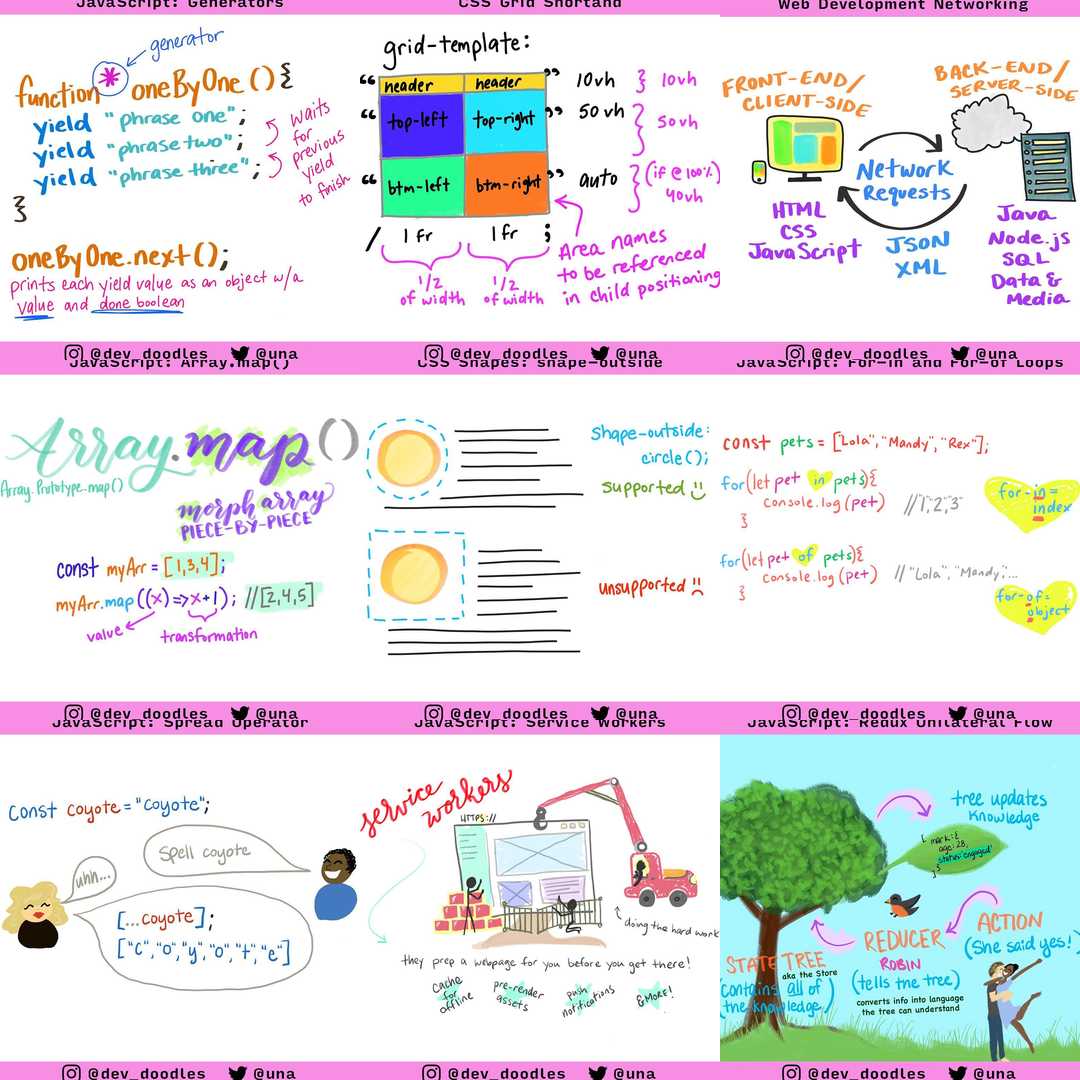 JavaScript: Generators
generator
function * oneByOne () {
yield "phrase one";
yield "phrase two";
yield "phrase three";
}
waits
for
previous
yield
to finish
oneByOne.next();
prints each yield value as an object w/a
value and done boolean
@dev_doodles @una
CSS Grid Shorthand
grid-template:
" header header " 10vh } 10vh
" top-left top-right " 50vh } 50vh
" btm-left btm-right " auto } (if @ 100%)
40vh
/ 1 fr 1 fr ;
1/2
of width
1/2
of width
Area names
to be referenced
in child positioning
@dev_doodles @una
Web Development Networking
FRONT-END/
CLIENT-SIDE
BACK-END/
SERVER-SIDE
Network
Requests
HTML
CSS
JavaScript
JSON
XML
Java
Node.js
SQL
Data &
Media
@dev_doodles @una
JavaScript: Array.map()
Array.map()
Array.Prototype.map()
morph array
PIECE-BY-PIECE
const myArr = [1,3,4];
myArr.map((x)=>x+1); //[2,4,5]
value
transformation
@dev_doodles @una
CSS Shapes: Shape-outside
Shape-outside:
circle();
supported
unsupported
@dev_doodles @una
JavaScript: For-in and For-of Loops
const pets = ["Lola","Mandy","Rex"];
for(let pet in pets){
console.log(pet) //"1,"2,"3"
}
for-in =
index
for(let pet of pets){
console.log(pet) //"Lola","Mandy",...
}
for-of =
object
@dev_doodles @una
JavaScript: Spread Operator
const coyote = "Coyote";
Spell coyote
uhh...
[...coyote];
["C","o","y","o","t","e"]
@dev_doodles @una
JavaScript: Service Workers
service
workers
HTTPS://
doing the hard work
they prep a webpage for you before you get there!
Cache
for
offline
pre-render
assets
push
notifications
& MORE!
@dev_doodles @una
JavaScript: Redux Unilateral Flow
tree updates
knowledge
{ mark:{
age: 28,
status:'engaged'
}}
ACTION
(She said yes!)
REDUCER
ROBIN
(tells the tree)
converts info into language
the tree can understand
STATE TREE
aka the Store
(contains all of
the knowledge)
@dev_doodles @una